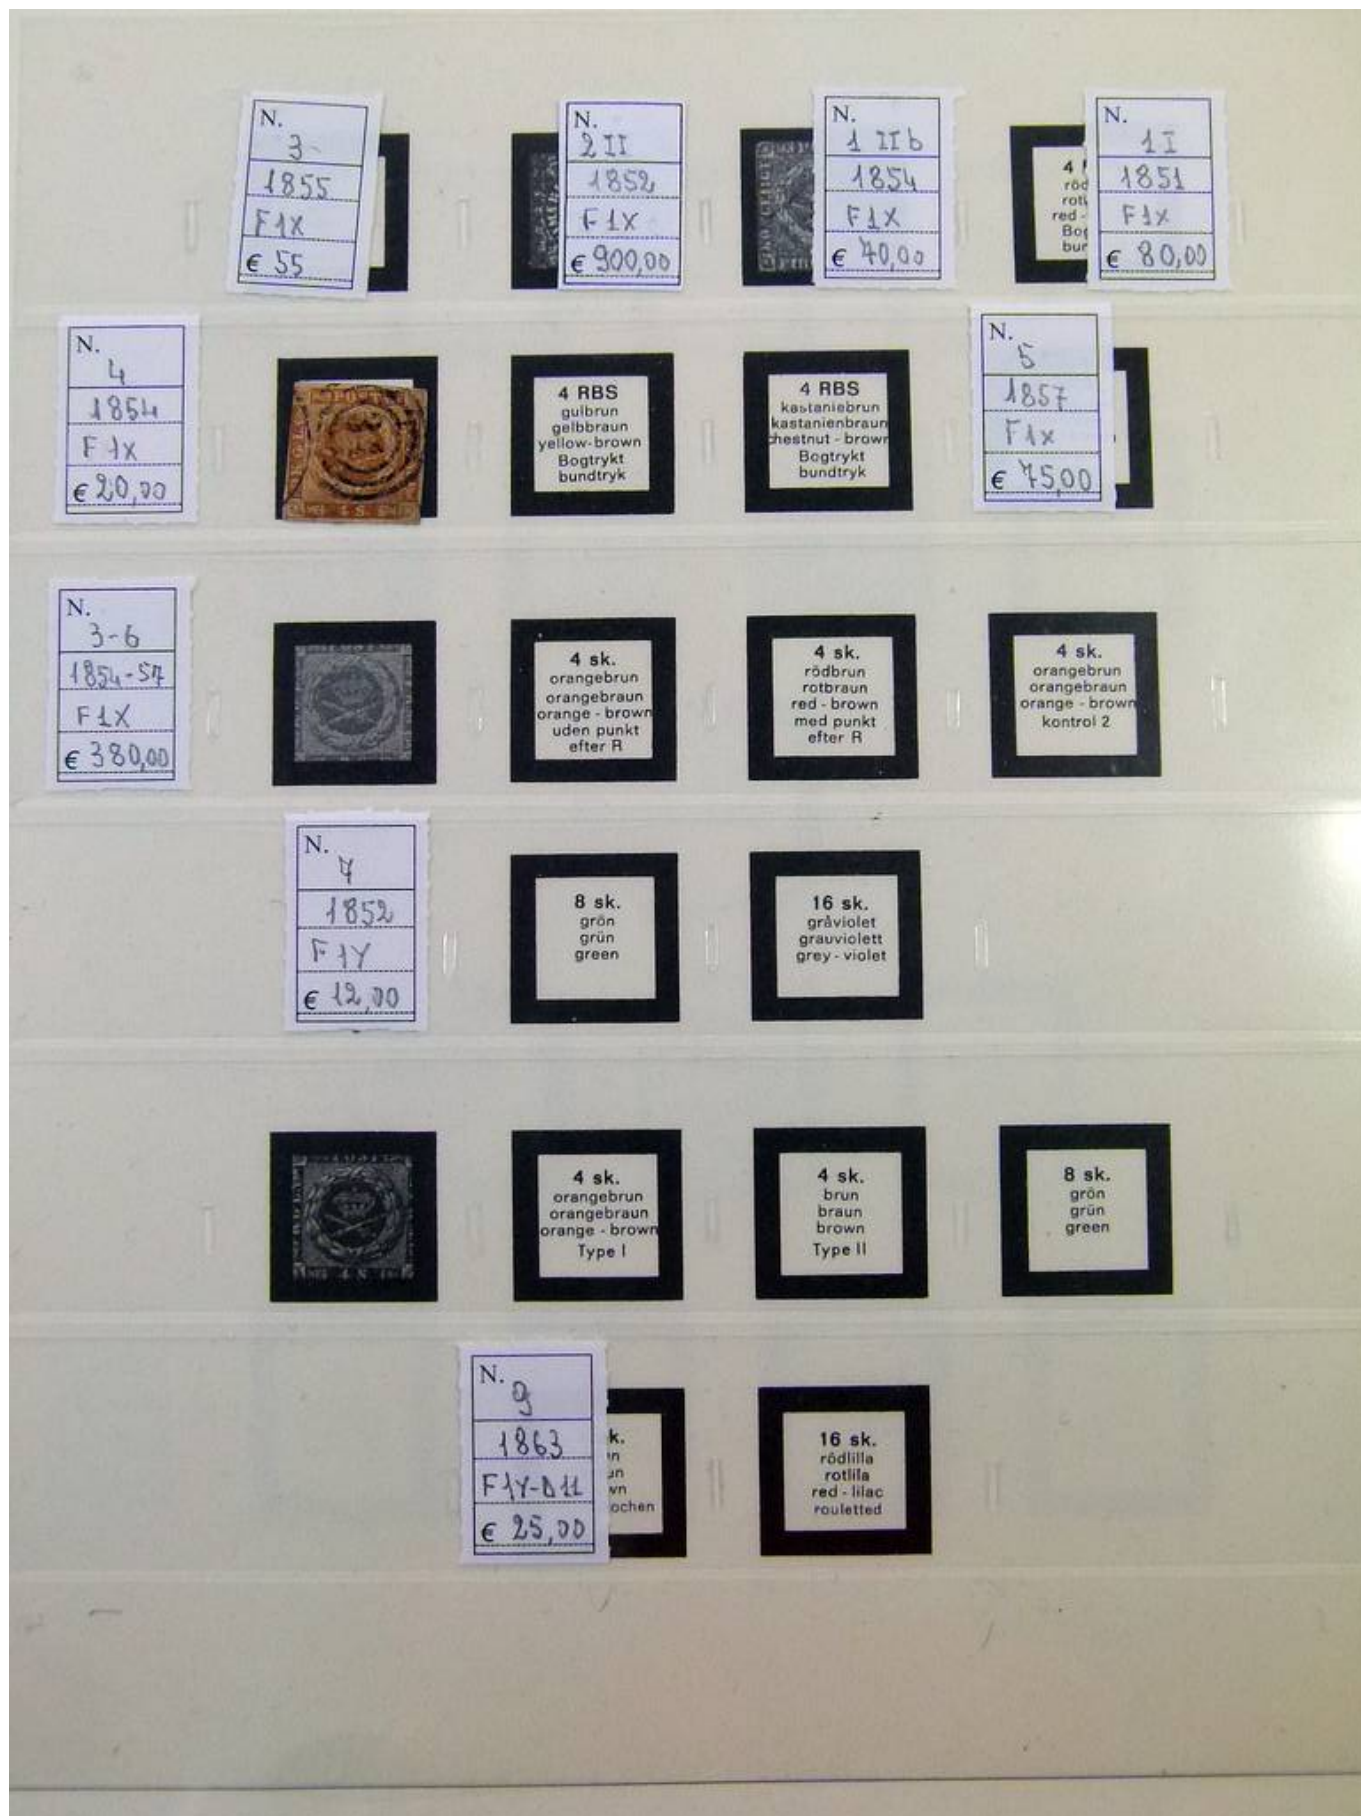 N.
3-
1855
F1X
€ 55
N.
2 II
1852
F1X
€ 900,00
N.
1 II b
1854
F1X
€ 40,00
4
röd
rot
red -
Bog
bun
N.
1 I
1851
F1X
€ 80,00
N.
4
1854
F1X
€ 20,00
4 RBS
gulbrun
gelbbraun
yellow-brown
Bogtrykt
bundtryk
4 RBS
kastaniebrun
kastanienbraun
chestnut - brown
Bogtrykt
bundtryk
N.
5
1857
F1x
€ 75,00
N.
3-6
1854-57
F1X
€ 380,00
4 sk.
orangebrun
orangebraun
orange - brown
uden punkt
efter R
4 sk.
rödbrun
rotbraun
red - brown
med punkt
efter R
4 sk.
orangebrun
orangebraun
orange - brown
kontrol 2
N.
7
1852
F1Y
€ 12,00
8 sk.
grön
grün
green
16 sk.
gråviolet
grauviolett
grey - violet
4 sk.
orangebrun
orangebraun
orange - brown
Type I
4 sk.
brun
braun
brown
Type II
8 sk.
grön
grün
green
N.
9
1863
F1Y-D11
€ 25,00
k.
un
wn
ochen
16 sk.
rödlilla
rotlila
red - lilac
rouletted